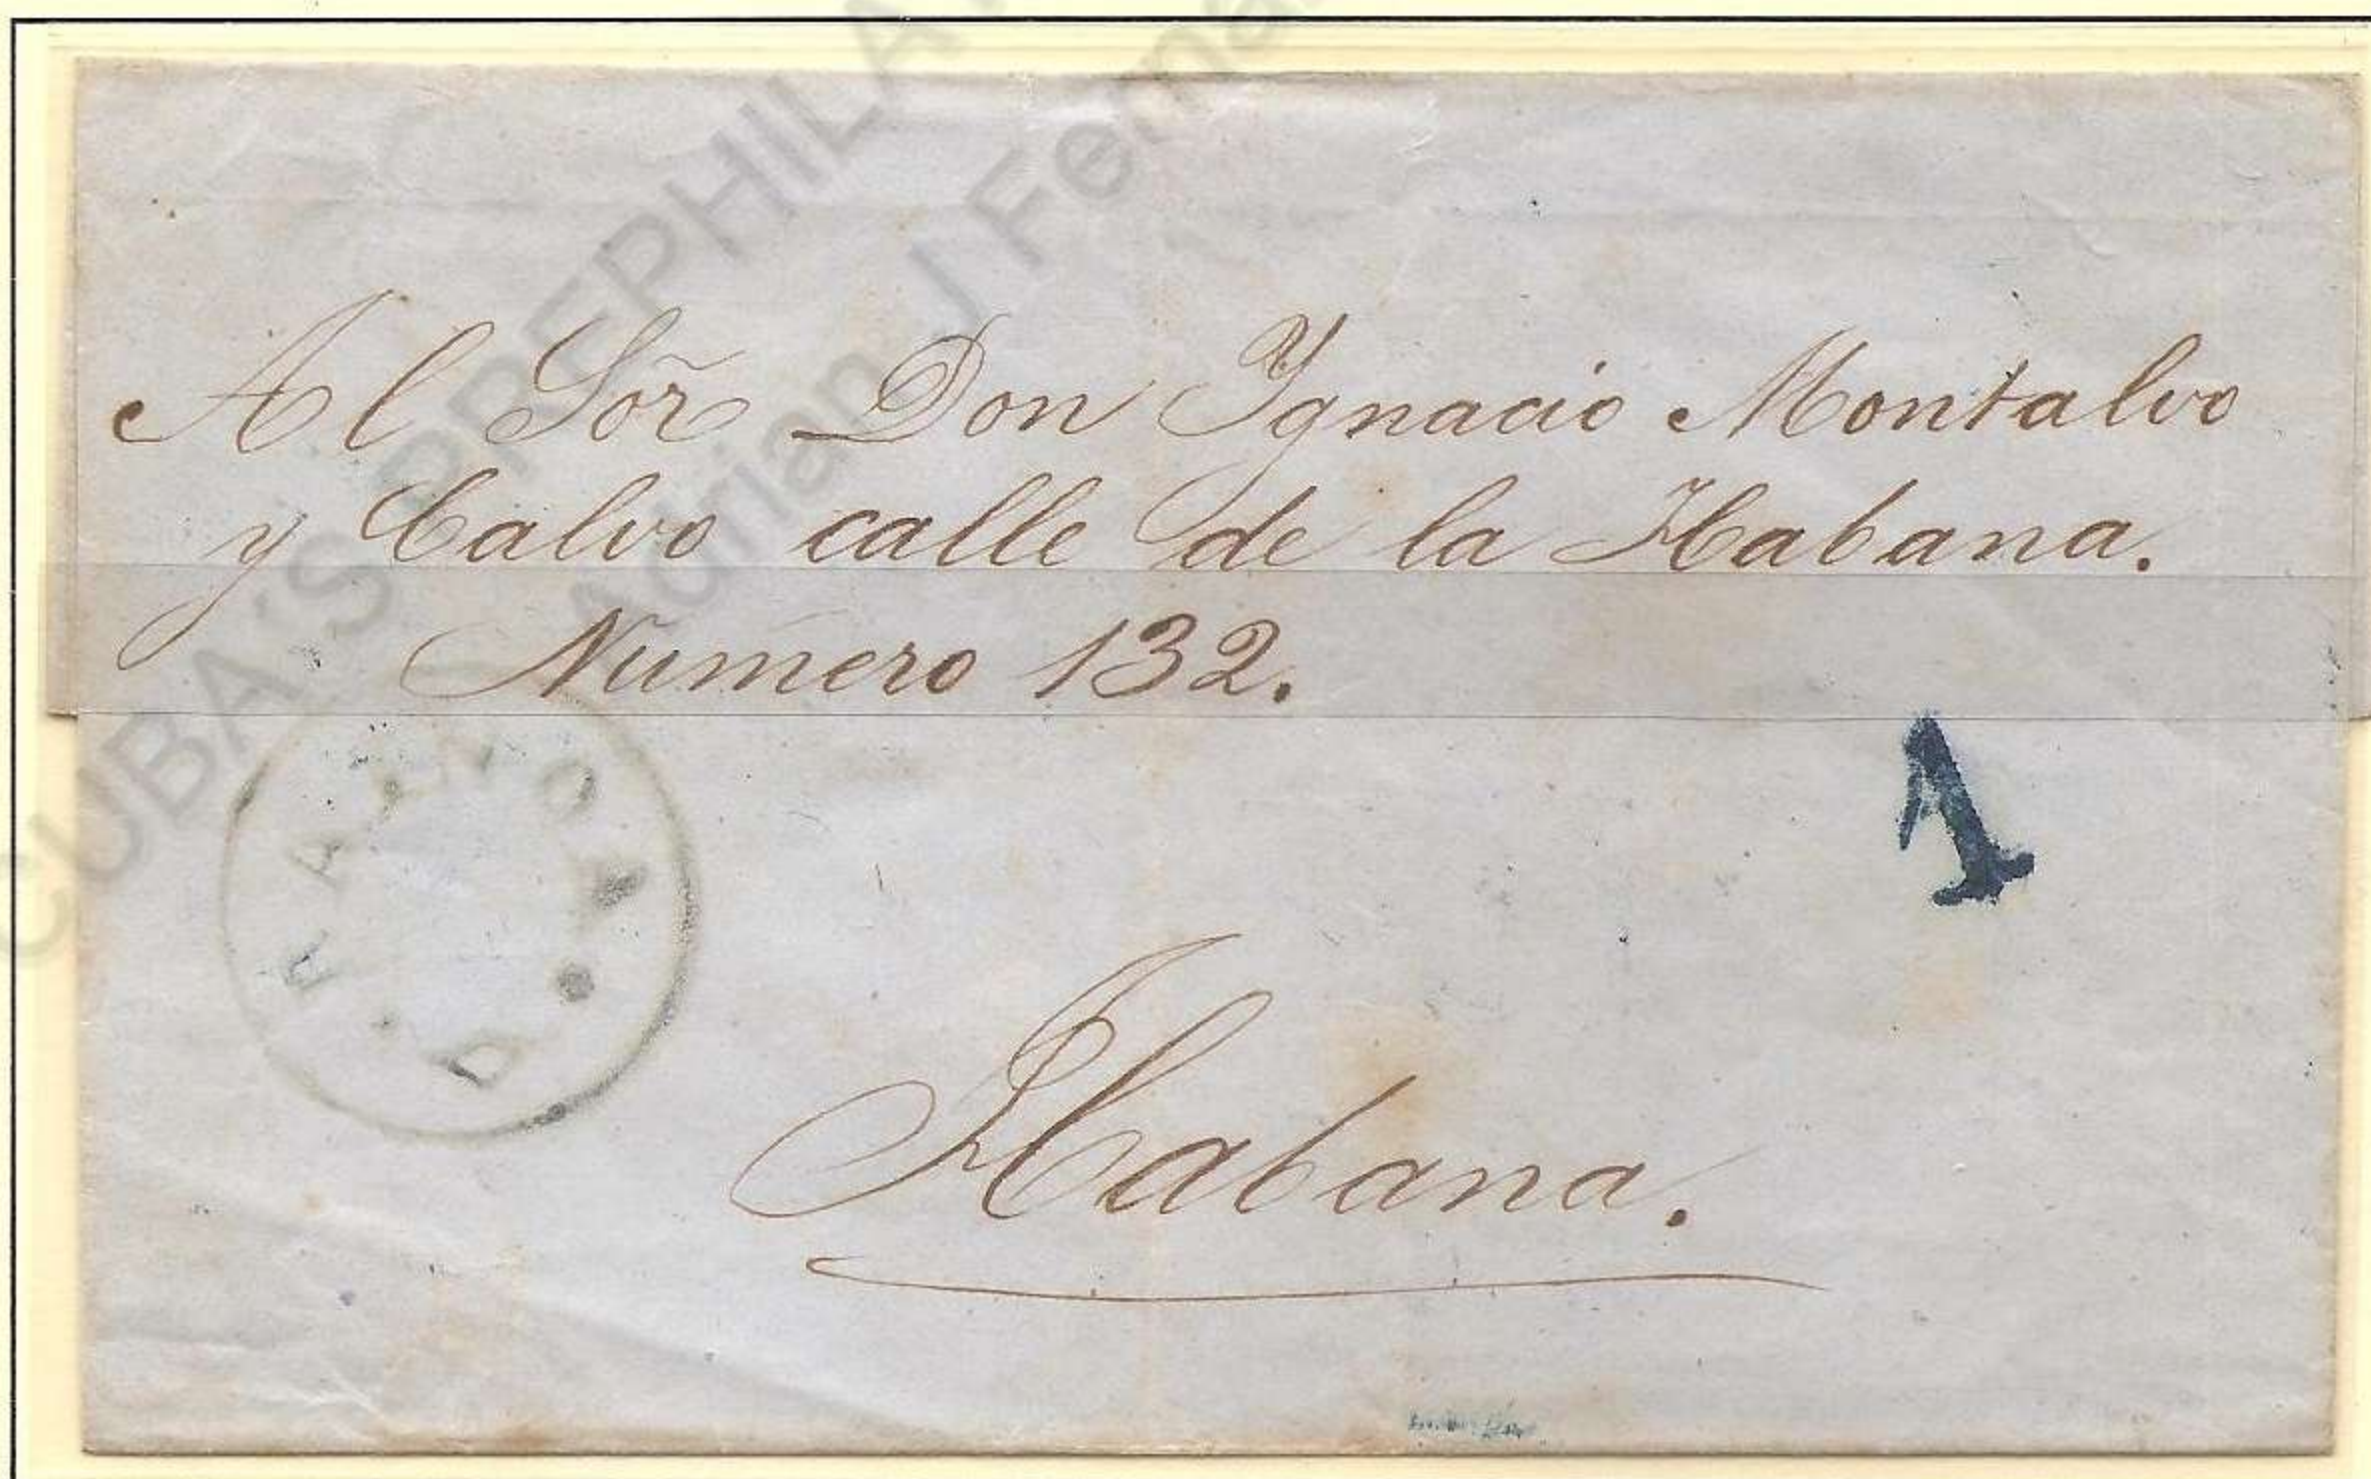 CUBA'S PREPHILA
Adrian J Ferna
Al Sor̃ Don Ygnacio Montalvo
y Calvo calle de la Habana.
Numero 132.
1
D
Habana.